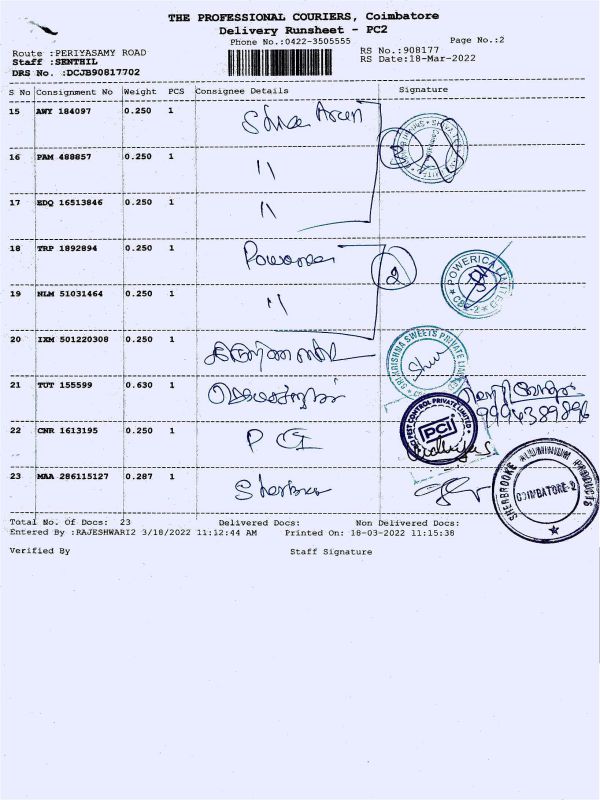 THE PROFESSIONAL COURIERS, Coimbatore
Delivery Runsheet - PC2
Phone No.:0422-3505555
Page No.:2
Route :PERIYASAMY ROAD
RS No.:908177
Staff :SENTHIL
RS Date:18-Mar-2022
DRS No. :DCJB90817702
S No Consignment No Weight PCS Consignee Details Signature
15 AWY 184097 0.250 1
16 PAM 488857 0.250 1 "
17 EDQ 16513846 0.250 1 "
18 TRP 1892894 0.250 1
2
POWERICA LIMITED
CBE-2
19 NLM 51031464 0.250 1 "
20 IXM 501220308 0.250 1
SRI KRISHNA SWEETS PRIVATE LIMITED
21 TUT 155599 0.630 1
9994389896
22 CNR 1613195 0.250 1 PCI
PEST CONTROL PRIVATE LIMITED
PCI
23 MAA 286115127 0.287 1
SHERBROOKE ALUMINIUM PRODUCTS
COIMBATORE-2
Total No. Of Docs: 23 Delivered Docs: Non Delivered Docs:
Entered By :RAJESHWARI2 3/18/2022 11:12:44 AM Printed On: 18-03-2022 11:15:38
Verified By Staff Signature